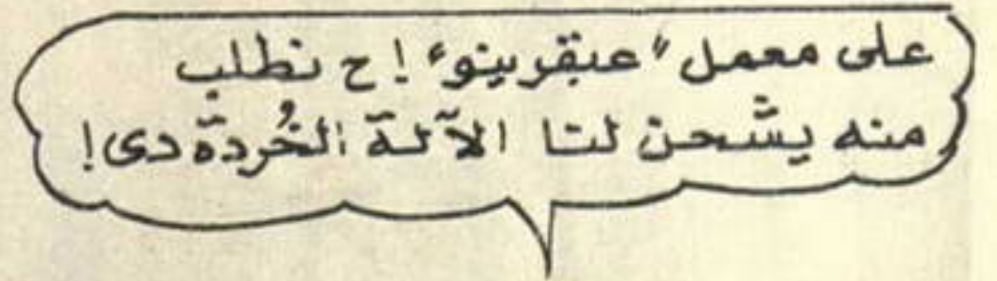 على معمل "عبقرينو"! ح نطلب
منه يشحن لنا الآلة الخُردة دى!